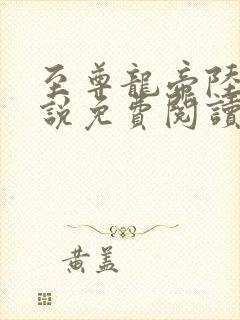 至尊龍帝陸
說免費閱讀
黃蓋